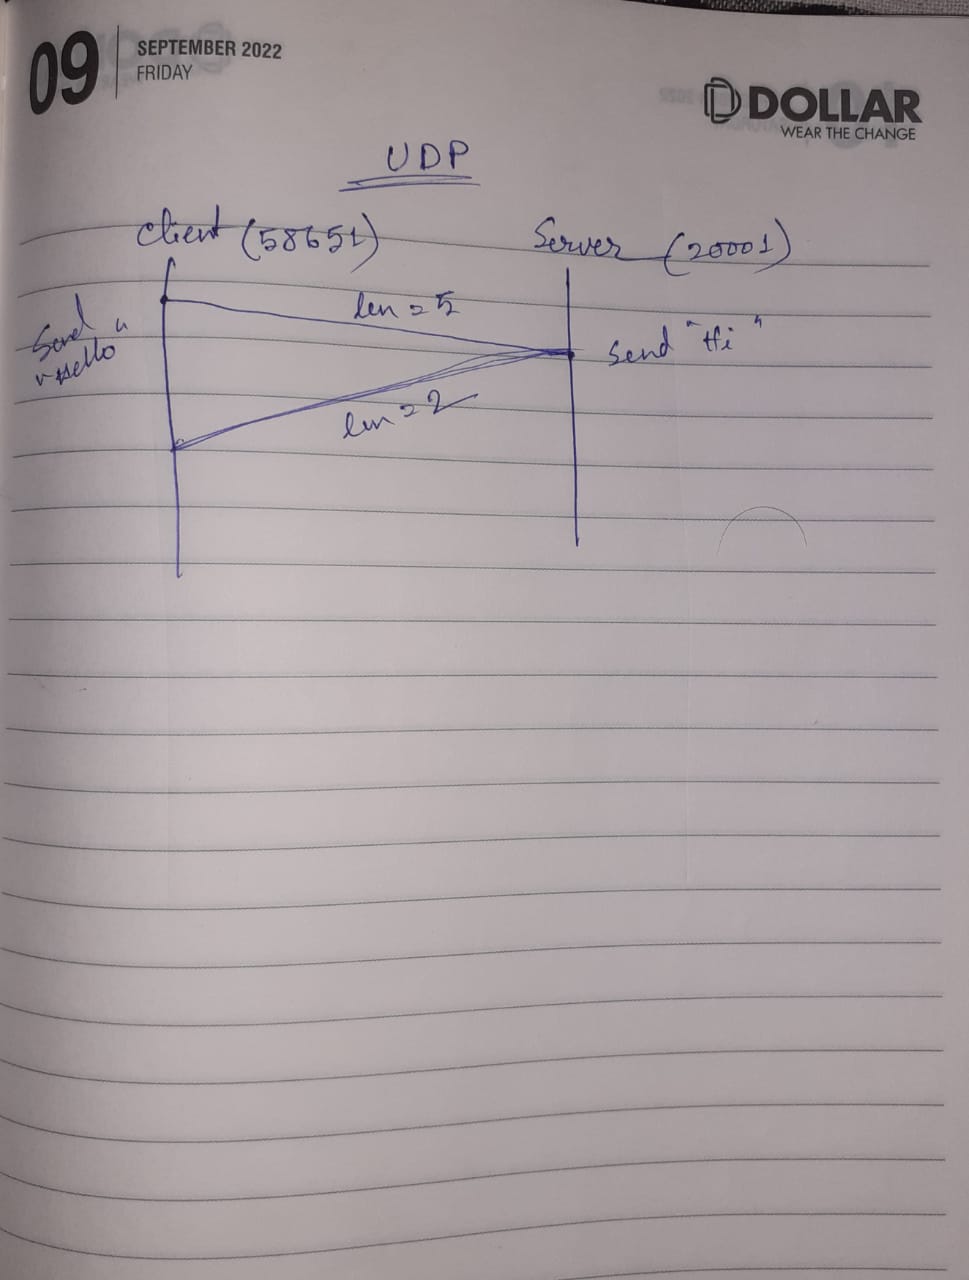 09
SEPTEMBER 2022
FRIDAY
DOLLAR
WEAR THE CHANGE
UDP
Client (58651)
Server (20001)
len = 5
Send
"Hello"
Send "Hi"
len = 2